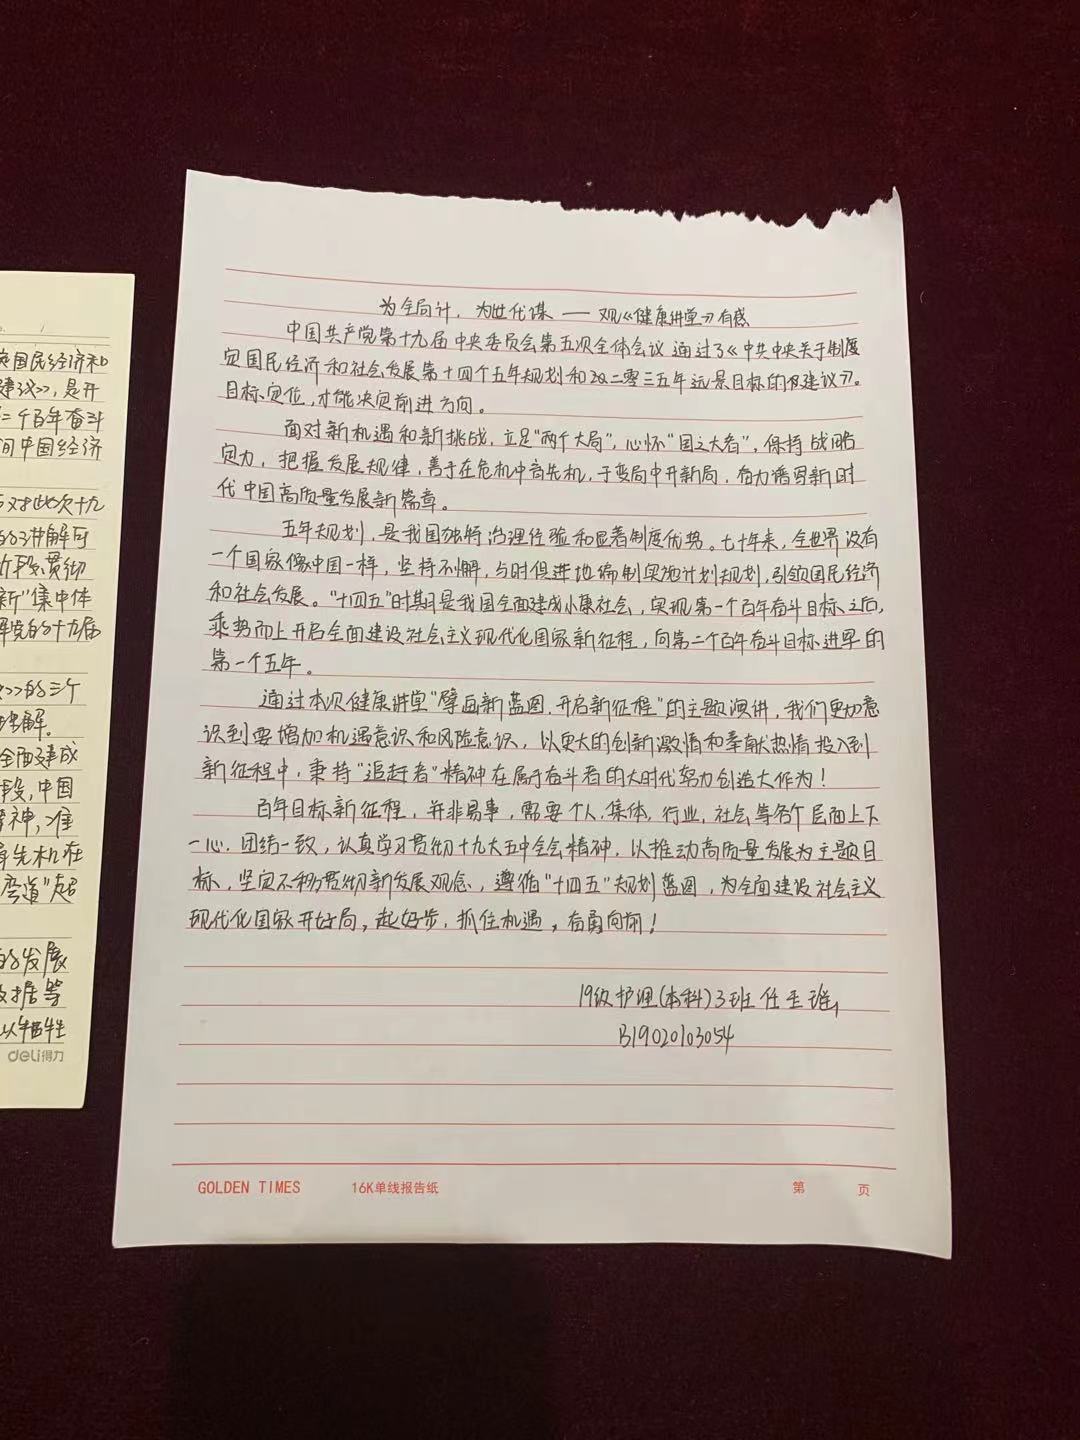 为全局计，为世代谋 —— 观《健康讲堂》有感
中国共产党第十九届中央委员会第五次全体会议通过了《中共中央关于制度
定国民经济和社会发展第十四个五年规划和二零三五年远景目标的建议》。
目标定位，才能决定前进方向。
面对新机遇和新挑战，立足"两个大局"，心怀"国之大者"，保持战略
定力，把握发展规律，善于在危机中育先机，于变局中开新局，奋力谱写新时
代中国高质量发展新篇章。
五年规划，是我国独特治理经验和显著制度优势。七十年来，全世界没有
一个国家像中国一样，坚持不懈，与时俱进地编制实施计划规划，引领国民经济
和社会发展。"十四五"时期是我国全面建成小康社会，实现第一个百年奋斗目标之后，
乘势而上开启全面建设社会主义现代化国家新征程，向第二个百年奋斗目标进军的
第一个五年。
通过本次健康讲堂"擘画新蓝图，开启新征程"的主题演讲，我们更加意
识到要增加机遇意识和风险意识，以更大的创新激情和奉献热情投入到
新征程中，秉持"追赶者"精神在属于奋斗者的大时代努力创造大作为！
百年目标新征程，并非易事，需要个人，集体，行业，社会等各个层面上下
一心，团结一致，认真学习贯彻十九大五中全会精神，以推动高质量发展为主题目
标，坚定不移贯彻新发展观念，遵循"十四五"规划蓝图，为全面建设社会主义
现代化国家开好局，起好步，抓住机遇，奋勇向前！
19级护理(本科)3班任玉雅
B19020103054
GOLDEN TIMES 16K单线报告纸 第 页
国民经济和
建议》，是开
二个百年奋斗
间中国经济
对此次十九
的讲解可
阶段，贯彻
新"集中体
党的十九届
》的三个
讲解。
全面建成
段，中国
精神，准
先机在
弯道"超
的发展
数据等
以牺牲
deli得力